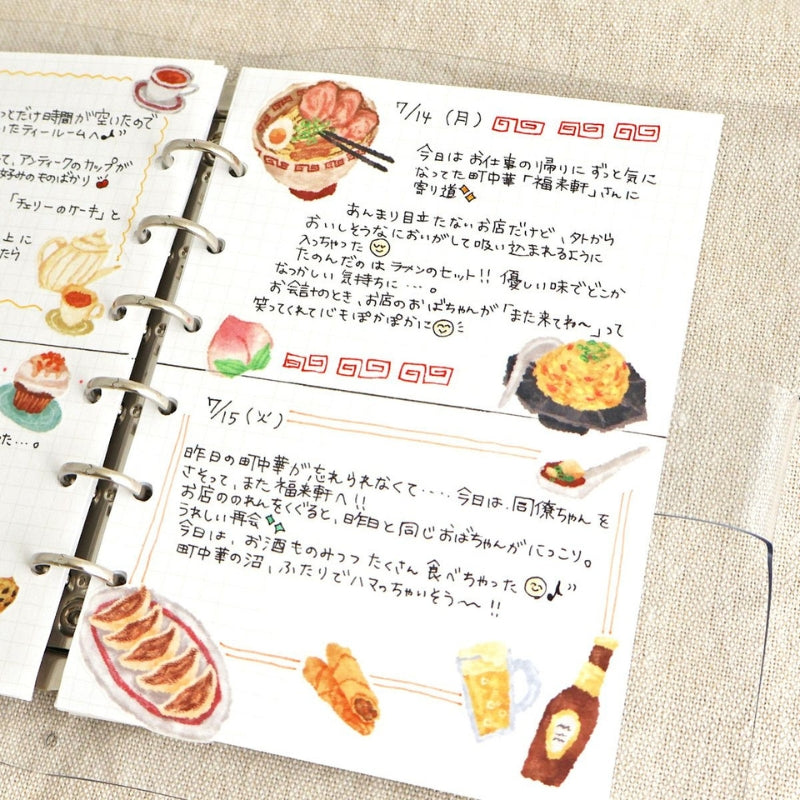 っとだけ時間が空いたので
いたティールームへ♪"
て、アンティークのカップが
好みのものばかり
「チェリーのケーキ」と
上に
たら
た…。
7/14 (月)
今日は お仕事の帰りに ずっと気に
なってた町中華「福来軒」さんに
寄り道
あんまり目立たないお店だけど、外から
おいしそうなにおいがして吸い込まれるように
入っちゃった
たのんだのは ラーメンのセット!! 優しい味でどこか
なつかしい 気持ちに…。
お会計のとき、お店のおばちゃんが「また来てね〜」って
笑ってくれて心もぽかぽかに
7/15 (火)
昨日の町中華が忘れられなくて‥‥今日は、同僚ちゃん を
さそって、また 福来軒へ!!
お店ののれんをくぐると、昨日と同じおばちゃんがにっこり。
うれしい再会
今日は、お酒ものみつつ たくさん 食べちゃった ♪"
町中華の沼、ふたりでハマっちゃいそう〜!!